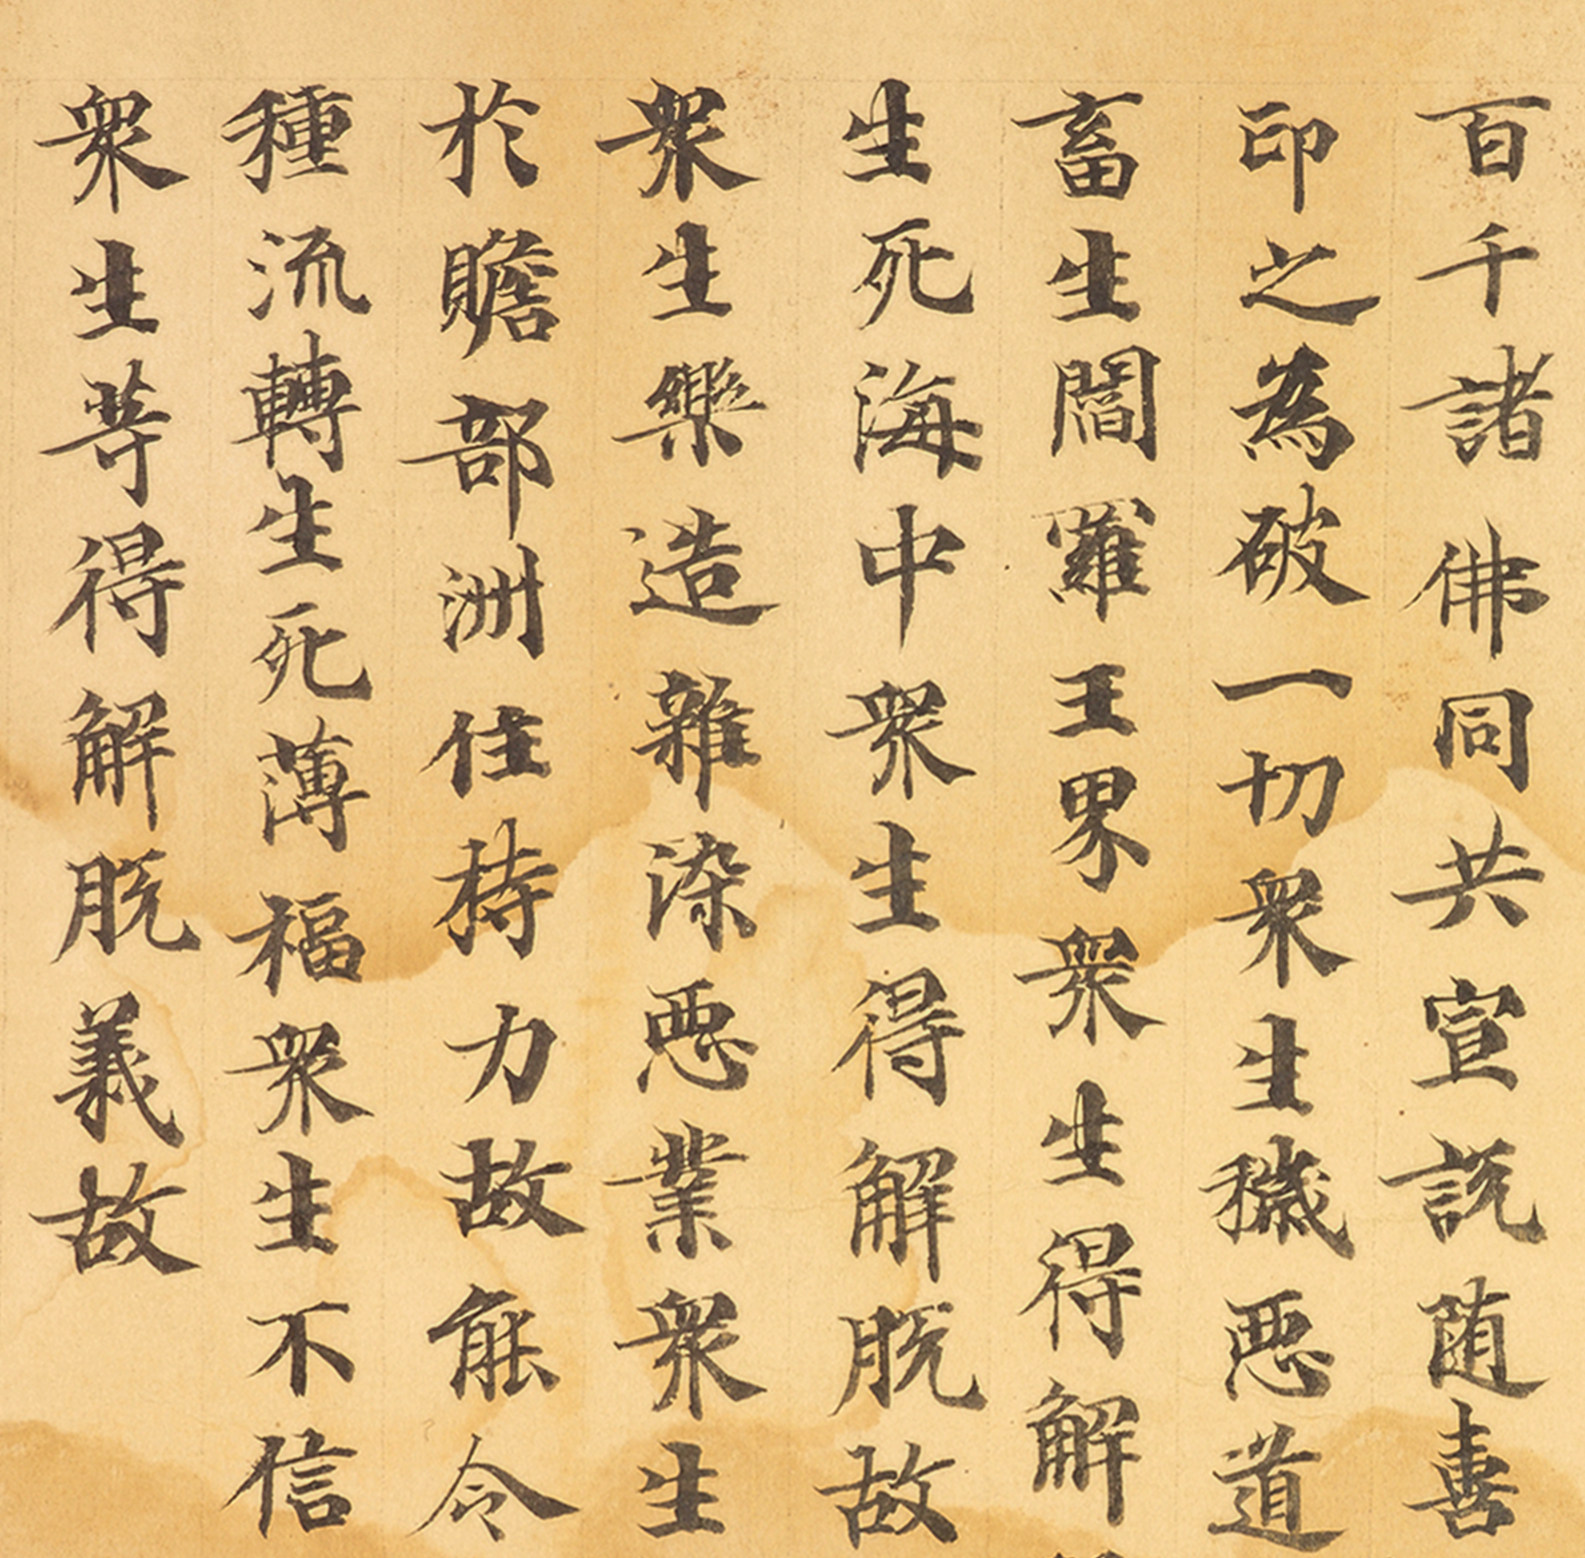 百千諸佛同共宣說随喜
印之為破一切衆生穢惡道
畜生閻羅王界衆生得解
生死海中衆生得解脫故
衆生樂造雜染惡業衆生
於贍部洲住持力故能令
種流轉生死薄福衆生不信
衆生等得解脫義故